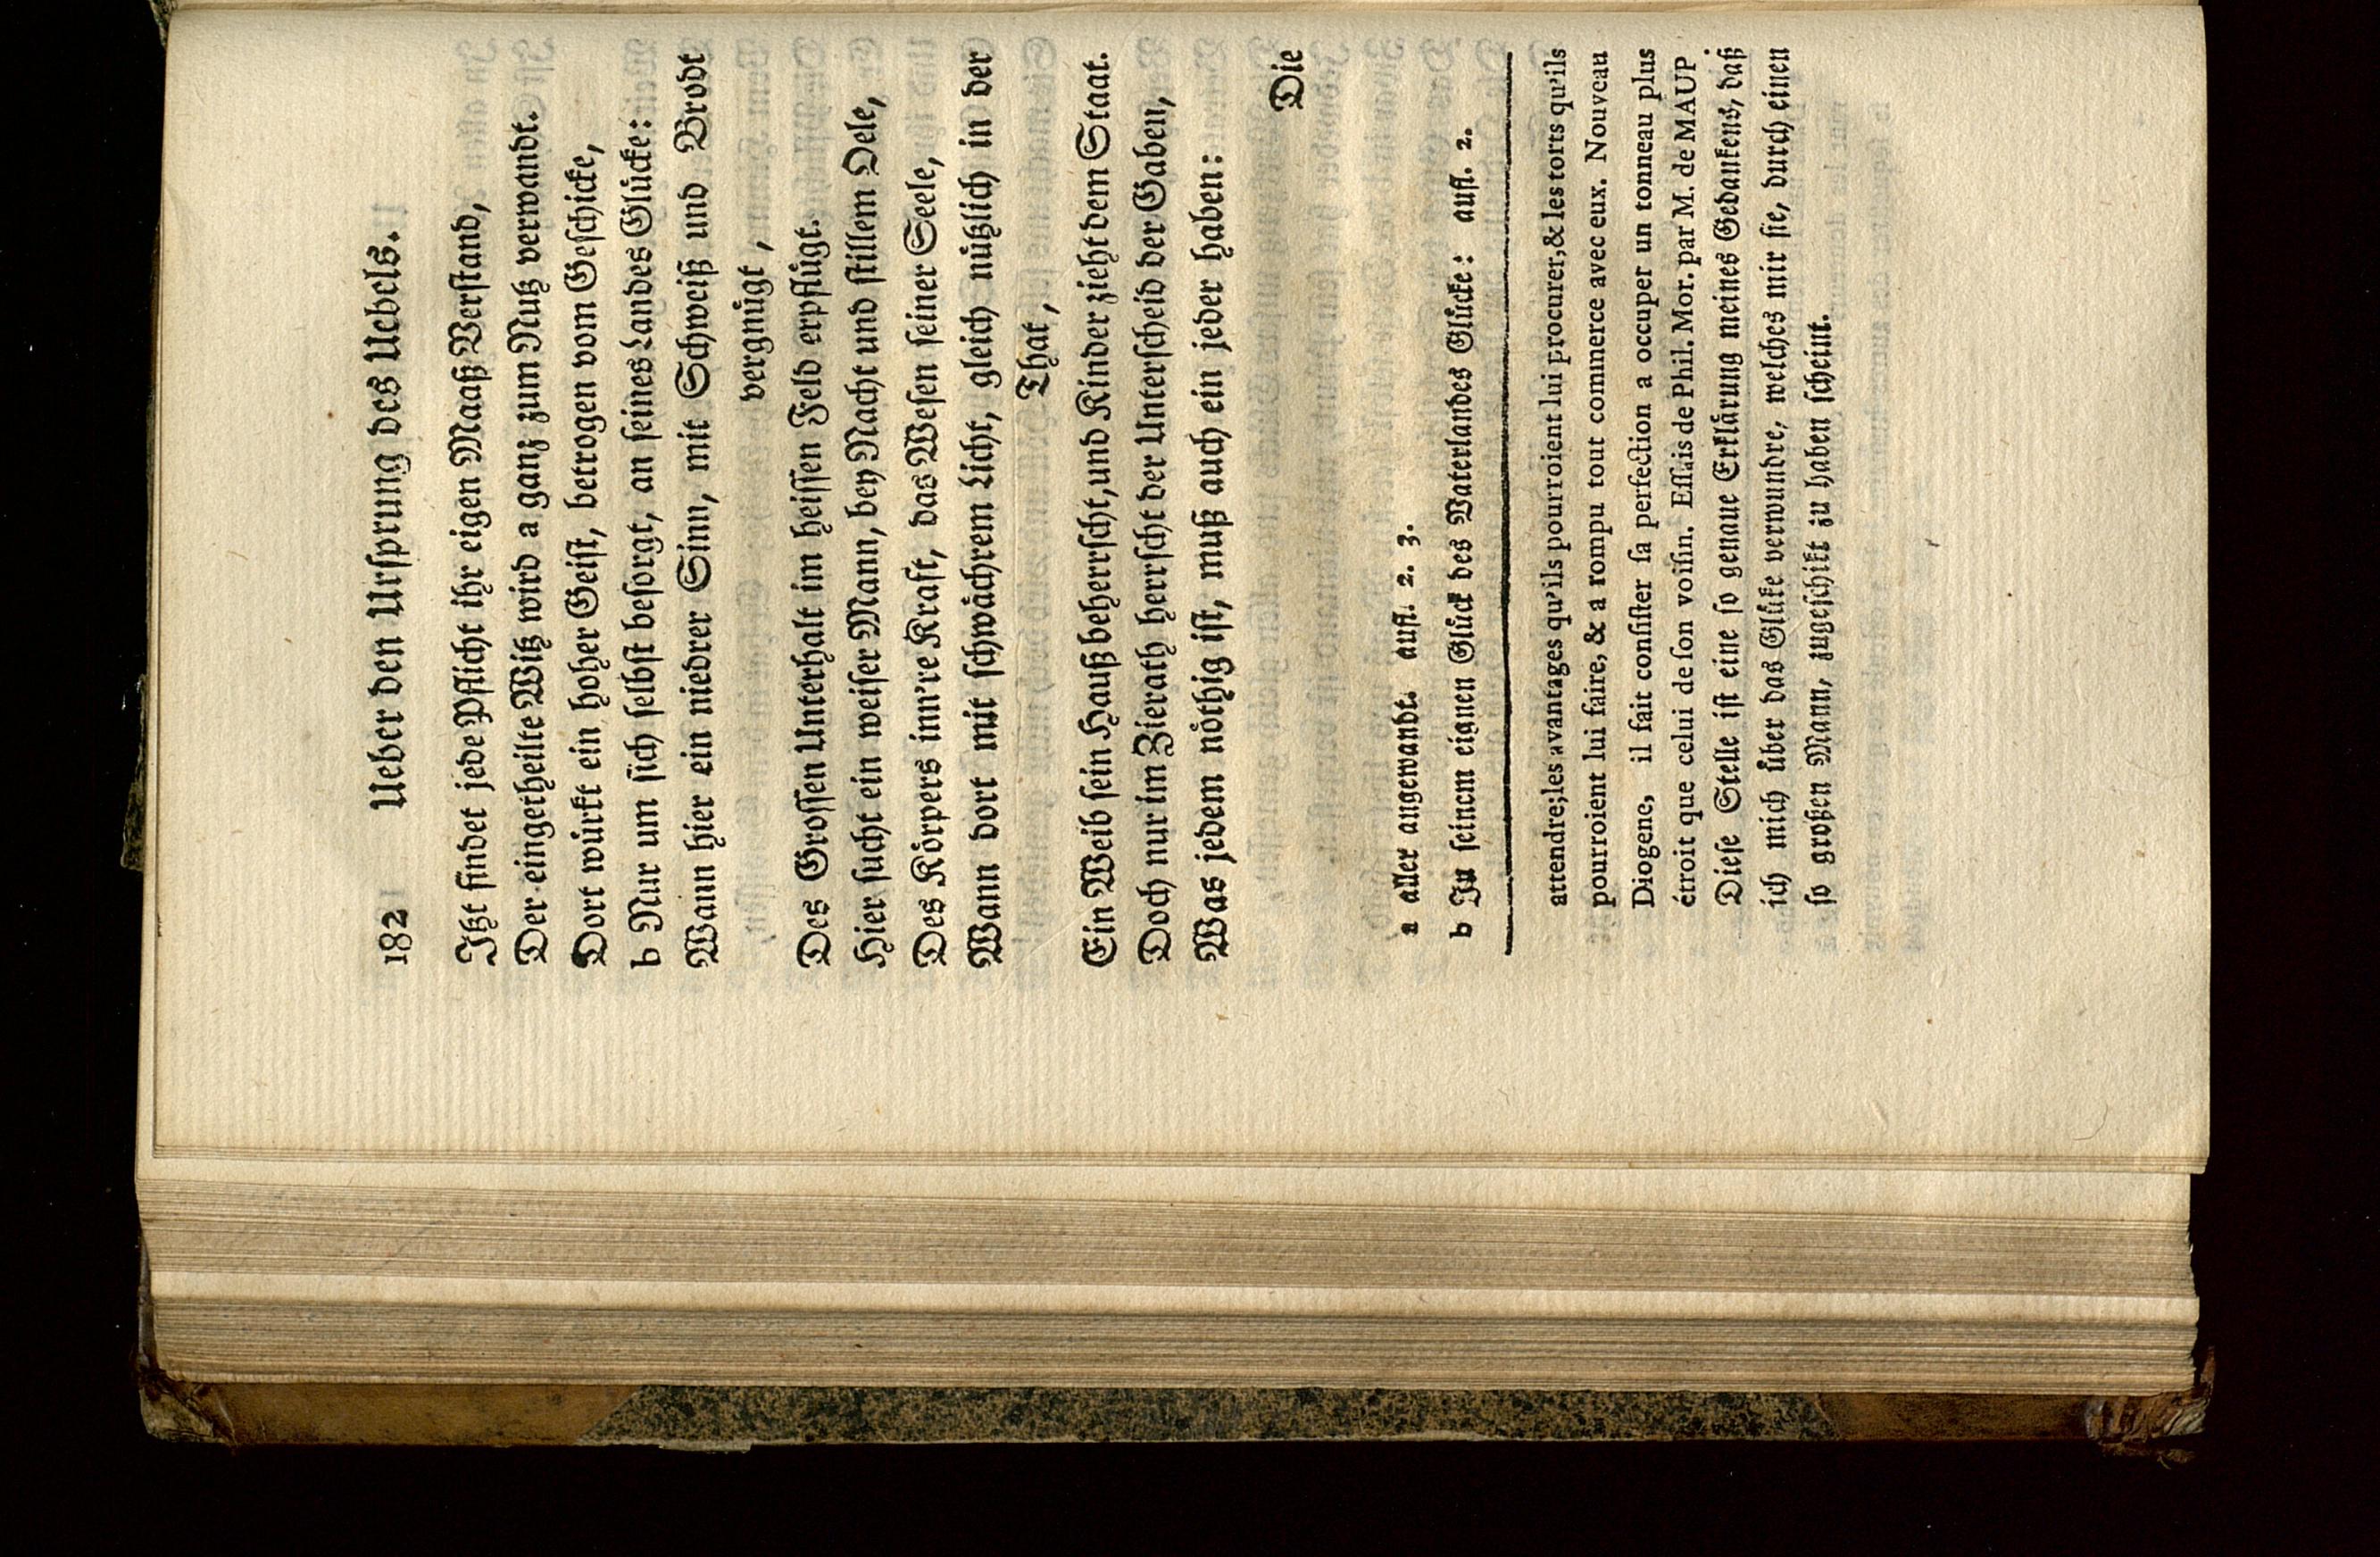 182 Ueber den Urſprung des Uebels.
Itzt findet jede Pflicht ihr eigen Maaß Verſtand,
Der eingetheilte Witz wird a ganz zum Nutz verwandt.
Dort würkt ein hoher Geiſt, betrogen vom Geſchicke,
b Nur um ſich ſelbſt beſorgt, an ſeines Landes Glücke:
Wann hier ein niedrer Sinn, mit Schweiß und Brodt
vergnügt,
Des Groſſen Unterhalt im heiſſen Feld erpflügt.
Hier ſucht ein weiſer Mann, bey Nacht und ſtillem Oele,
Des Körpers inn're Kraft, das Weſen ſeiner Seele,
Wann dort mit ſchwächrem Licht, gleich nützlich in der
That,
Ein Weib ſein Hauß beherrſcht, und Kinder zieht dem Staat.
Doch nur im Zierath herrſcht der Unterſcheid der Gaben,
Was jedem nöthig iſt, muß auch ein jeder haben:
Die
a aller angewandt. aufl. 2. 3.
b In ſeinem eignen Glück des Vaterlandes Glücke: aufl. 2.
attendre; les avantages qu'ils pourroient lui procurer, & les torts qu'ils
pourroient lui faire, & a rompu tout commerce avec eux. Nouveau
Diogene, il fait conſiſter ſa perfection a occuper un tonneau plus
étroit que celui de ſon voiſin. Eſſais de Phil. Mor. par M. de MAUP
Dieſe Stelle iſt eine ſo genaue Erklärung meines Gedankens, daß
ich mich über das Glüke verwundre, welches mir ſie, durch einen
ſo großen Mann, zugeſchikt zu haben ſcheint.